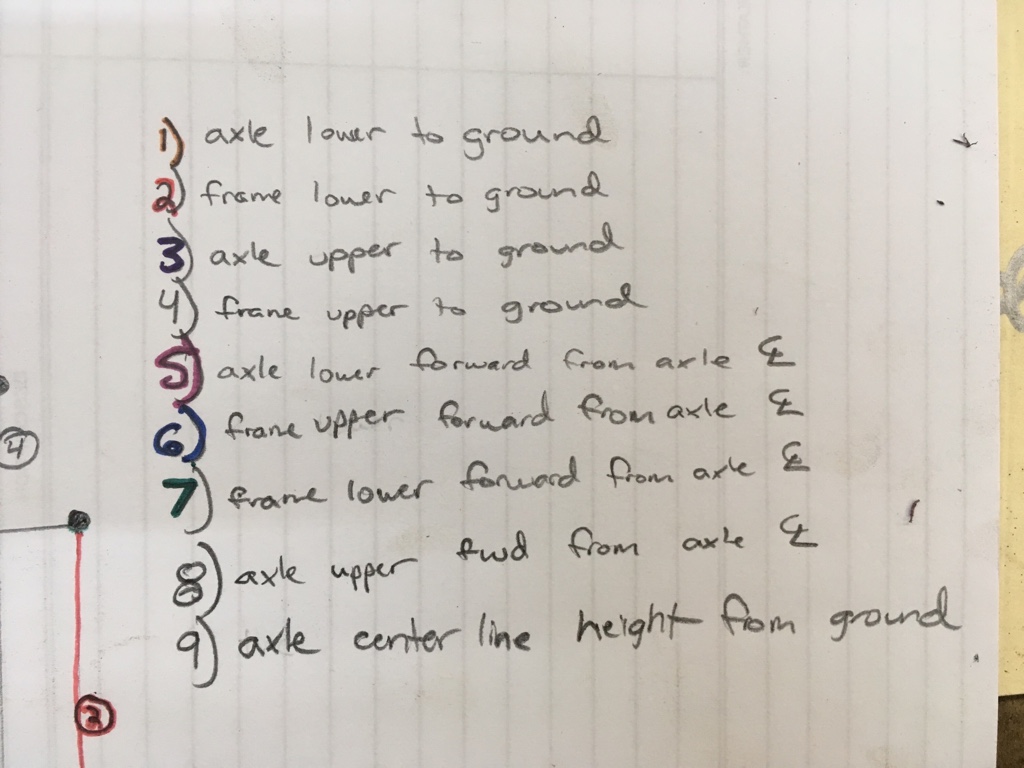 1) axle lower to ground
2) frame lower to ground
3) axle upper to ground
4) frame upper to ground
5) axle lower forward from axle ℄
6) frame upper forward from axle ℄
7) frame lower forward from axle ℄
8) axle upper fwd from axle ℄
9) axle center line height from ground
4
2